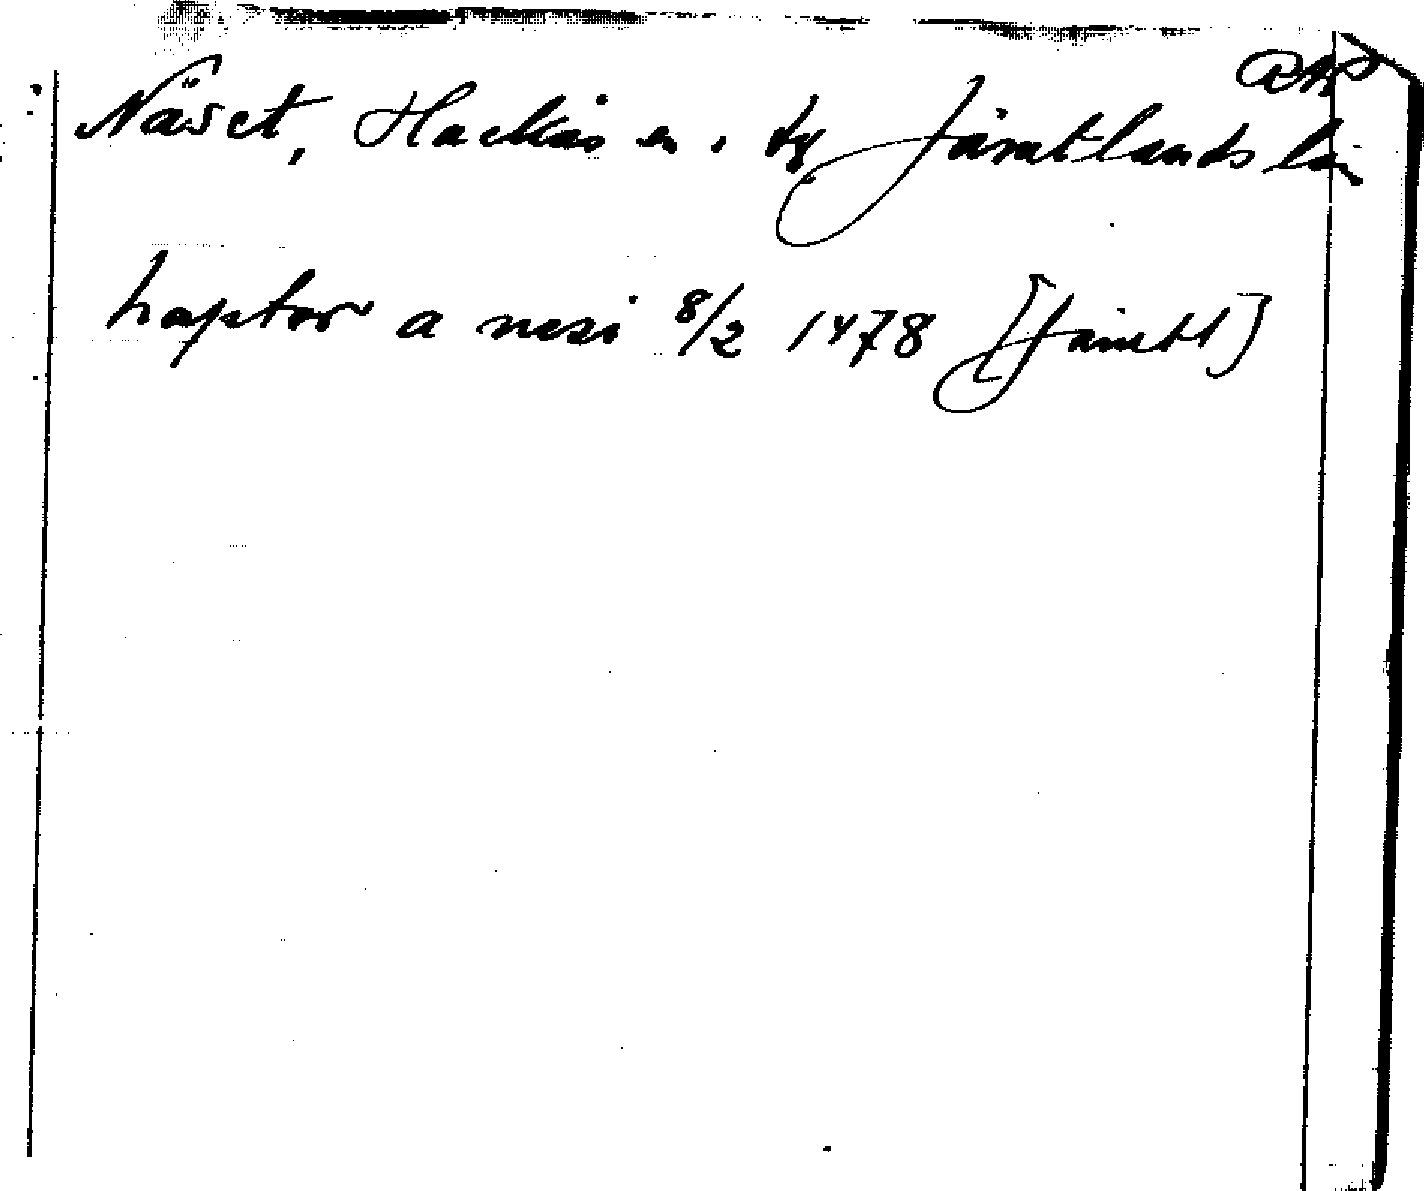 RAP
Näset, Hackås sn, tg Jämtlands län
haptor a nesi 8/2 1478 [Jämtl]